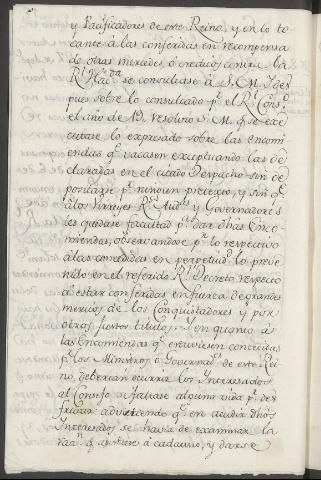 y Pacificadores de este Reino, y en lo to
cante à las conferidas en recompensa
de otras mercedes, ò creditos contra la
Rl. Haсda. se consultase à S. M. Y des
pues sobre lo consultado pr. el Rl. Consº.
el año de 19. resolvio S. M. q. se exe
cutase lo expresado sobre las encomi
endas q. vacasen exceptuando las de
claradas en el citado Despacho sin de
pordarse pr. ningun pretexto, y sin q.
à los Virreyes Rs. Auds. y Governadores
les quedase facultad pa. dar dhas Enco
miendas, observandose pr. lo respectivo
a las concedidas en perpetuid. lo preve
nido en el referido Rl. Decreto respecto
a estar conferidas en fuerza de grandes
meritos de los Conquistadores y por
otros justos titulos; Y en quanto à
las Encomiendas q. estuviesen concedidas
pr. los Ministros ò Governads. de este Rei
no, deberian ocurrir los Interesados
al Consejo si faltase alguna vida pr. dis
frutar advirtiendo q. en acudir dhos
Interesados se havia de examinar la
raan. q. asistiese à cada uno, y darse